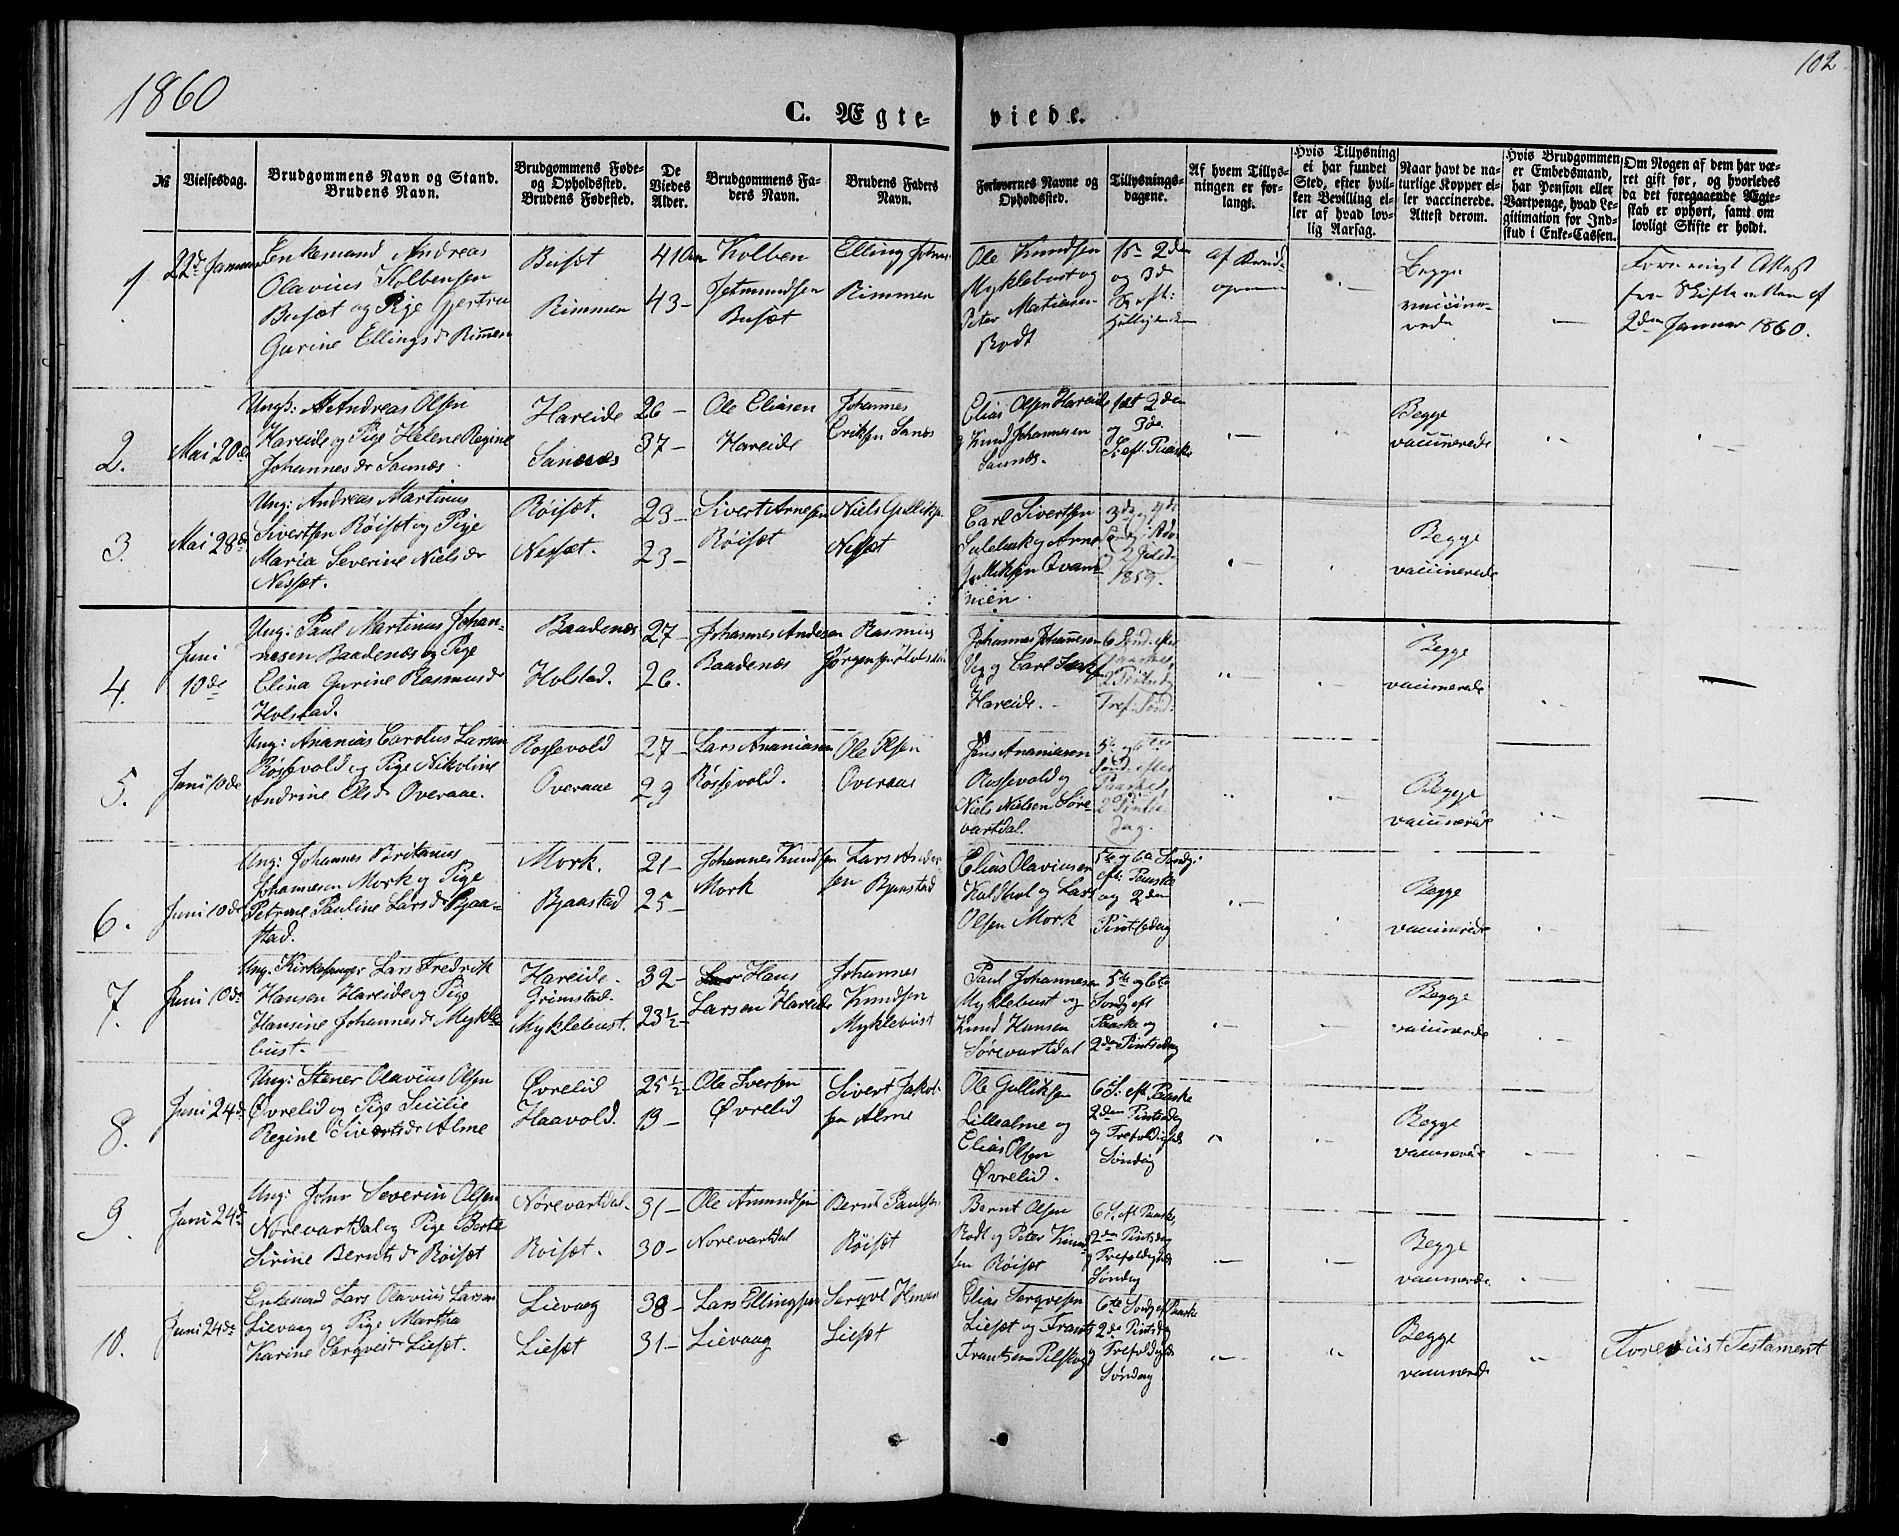 1860
102
C. Ægte-
viede.
№
Vielsesdag.
Brudgommens Navn og Stand.
Brudens Navn.
Brudgommens Føde-
og Opholdssted.
Brudens Fødested.
De
Viedes
Alder.
Brudgommens Fa-
ders Navn.
Brudens Faders
Navn.
Forlovernes Navne og
Opholdssted.
Tillysnings-
dagene.
Af hvem Tillys-
ningen er for-
langt.
Hvis Tillysning
ei har fundet
Sted, efter hvil-
ken Bevilling el-
ler af hvad lov-
lig Aarsag.
Naar havt de na-
turlige Kopper el-
ler vaccinerede.
Attest derom.
Hvis Brudgommen
er Embedsmand,
har Pension eller
Vartpenge, hvad Le-
gitimation for Ind-
skud i Enke-Cassen.
Om Nogen af dem har væ-
ret gift før, og hvorledes
da det foregaaende Ægte-
skab er ophørt, samt om
lovligt Skifte er holdt.
1
22de Januar
Enkemand Andreas
Olavius Kolbensen
Busæt og Pige Gjertru
Gurine Ellingsdr Rimmen
Busæt
Rimmen
41 Aar
43 -
Kolben
Jetmundsen
Busæt
Elling Johns
Rimmen
Ole Knudsen
Myklebust og
Peter Matiasen
Rodt
1s- 2den
og 3de
S. eft:
Helligtre
af Brud-
Begge
vaccine-
rede
Attest
fra Skifteretten af
2den Januar 1860.
2.
Mai 20de
Ungk: Andreas Olsen
Hareide og Pige Helene Regine
Johannesdr Saunes
Hareide
Sanesæs
26 -
37 -
Ole Eliasen
Hareide
Johannes
Eriksen Sanes
Elias Olsen Hareide
og Knud Johannesen
Saunes.
1ste 2den
og 3de
S. eft. Paaske
Begge
vaccinerede
3.
Mai 28de
Ung: Andreas Martinus
Sivertsen Röisæt og Pige
Maria Severine Nielsdr
Nessæt.
Röisæt.
Nessæt.
23 -
23 -
Sivert Arnesen
Röisæt
Niels Gulliksen
Nessæt
Carl Sivertsen
Sulebak og Arne
Gulliksen Qvam-
mien.
3de og 4de
1859.
Begge
vaccinerede
4.
Juni
10de
Ung: Paul Martinus Johan-
nesen Baadenæs og Pige
Elina Gurine Rasmusdr
Holstad.
Baadenæs
Holstad.
27 -
26.
Johannes Andersen
Baadenæs
Rasmus
Jørgensen Holstad
Johannes Johannesen
Vig og Carl Isaks
Hareide.
6 Sönd. efter
Paaske,
2 Pintsd
Tref. Sönd.
Begge
vaccinerede
5.
Juni 10de
Ung: Ananias Carolus Larsen
Rössevold og Pige Nikoline
Andrine Olsdr Overaae.
Rossevold
Overaae
27 -
29
Lars Ananiasen
Rössevold.
Ole Olsen
Overaae
Jens Ananiasen
Rossevold og
Niels Nielsen Söre-
vartdal.
5te og 6te
Sönd. efter
Paaske,
2 Pintse
dag.
Begge
vaccinerede
6.
Juni 10de
Ung: Johannes Britanus
Johannesen Mork og Pige
Petrine Pauline Larsdr Bjaa-
stad.
Mork.
Bjaastad
21 -
25 -
Johannes Knudsen
Mork
Lars Ander
sen Bjaastad
Elias Olaviusen
Kaldhol og Lars
Olsen Mork
5te og 6te Søndg:
eft: Paaske
og 2den
Pintsedag
Begge
vaccinerede
7.
Juni 10de
Ung. Kirkesanger Lars Fredrik
Hansen Hareide og Pige
Hansine Johannesdr Mykle
bust.
Hareide.
Grimstad.
Myklebust.
32 -
23½ -
Hans
Larsen Hareide
Johannes
Knudsen
Myklebust
Paul Johannesen
Myklebust og
Knud Hansen
Sörevartdal
5te og 6te
Söndg eft
Paaske og
2den Pintsedag
Begge
vaccinerede
8.
Juni 24de
Ung: Stener Olavius Olsen
Øvrelid og Pige Sicilie
Regine Sivertsdr Alme
Øvrelid
Haavold.
25½
19 -
Ole Iversen
Øvrelid
Sivert Jakob-
sen Alme
Ole Gulliksen
Lillealme og
Elias Olsen
Øvrelid.
6 S. eft Paaske
2den Pintsedag
og Trefoldigheds
Søndag
Begge
vaccinerede
9.
Juni 24de
Ung: John Severin Olsen
Nörevartdal og Pige Berte
Sirine Berntsdr Röisæt
Nörevartdal.
Röisæt.
31 -
30 -
Ole Amundsen
Nörevartdal
Bernt Paulsen
Röisæt
Bernt Olsen
Rodt og Peter Knud
sen Röisæt
6 S. eft Paaske,
2den Pintsdag
og Trefoldigheds
Søndag
Begge
vaccinerede
10.
Juni 24de
Enkemand Lars Olavius Larsen
Lievaag og Pige Martha
Karine Serqvesdr Liesæt.
Lievaag
Liesæt
38 -
31 -
Lars Ellingsen
Lievaag
Serqve Hansen
Liesæt
Elias Serqvesen
Liesæt og Frants
Frantsen Pilskog
6te Söndg eft Paaske
2de Pintsdg
og Trefoldigheds
Søndag
Begge
vaccinerede
Foreviist Testament